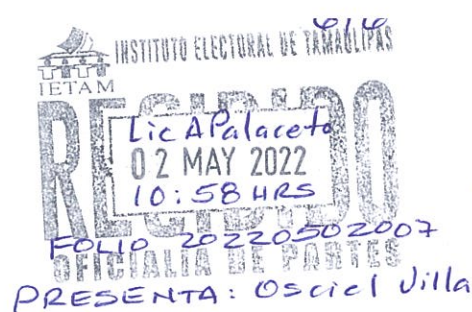 INSTITUTO ELECTORAL DE TAMAULIPAS
IETAM
RECIBIDO
Lic APalaceto
02 MAY 2022
10:58 HRS
FOLIO 20220502007
OFICIALIA DE PARTES
PRESENTA: Osciel Villa